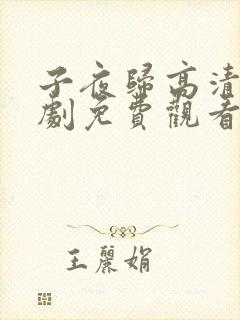 子夜歸高清
劇免費觀看
王麗娟